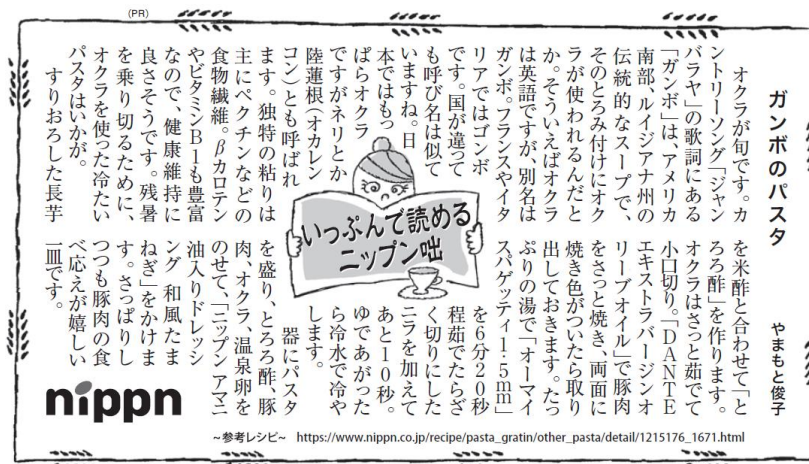 (PR)
ガンボのパスタ
やまもと俊子
オクラが旬です。カ
ントリーソング「ジャン
バラヤ」の歌詞にある
「ガンボ」は、アメリカ
南部、ルイジアナ州の
伝統的なスープで、
そのとろみ付けにオク
ラが使われるんだと
か。そういえばオクラ
は英語ですが、別名は
ガンボ。フランスやイタ
リアではゴンボ
です。国が違って
も呼び名は似て
いますね。日
本ではもっ
ぱらオクラ
ですがネリとか
陸蓮根(オカレン
コン)とも呼ばれ
ます。独特の粘りは
主にペクチンなどの
食物繊維。βカロテン
やビタミンB1も豊富
なので、健康維持に
良さそうです。残暑
を乗り切るために、
オクラを使った冷たい
パスタはいかが。
すりおろした長芋
を米酢と合わせて「と
ろろ酢」を作ります。
オクラはさっと茹でて
小口切り。「DANTE
エキストラバージンオ
リーブオイル」で豚肉
をさっと焼き、両面に
焼き色がついたら取り
出しておきます。たっ
ぷりの湯で「オーマイ
スパゲッティ1・5mm」
を6分20秒
程茹でたらざ
く切りにした
ニラを加えて
あと10秒。
ゆであがった
ら冷水で冷や
します。
器にパスタ
を盛り、とろろ酢、豚
肉、オクラ、温泉卵を
のせて、「ニップン アマニ
油入りドレッシ
ング 和風たま
ねぎ」をかけま
す。さっぱりし
つつも豚肉の食
べ応えが嬉しい
一皿です。
いっぷんで読める
ニップン咄
nippn
~参考レシピ~ https://www.nippn.co.jp/recipe/pasta_gratin/other_pasta/detail/1215176_1671.html